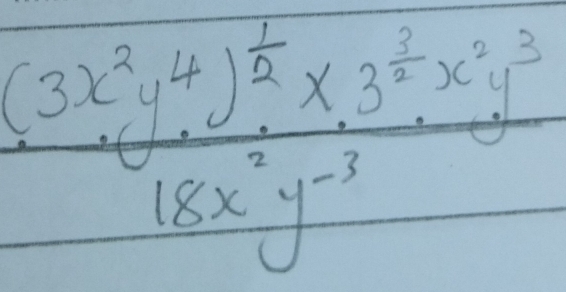 (3x²y⁴)^(1/2) × 3^(3/2) x²y³
18x²y⁻³